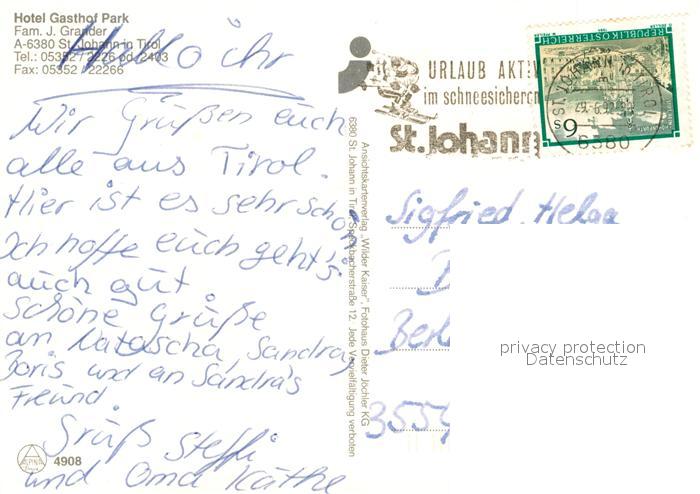 Hotel Gasthof Park
Fam. J. Grander
A-6380 St. Johann in Tirol
Tel.: 05352 / 2226 od. 2403
Fax: 05352 / 22266
Hallo ihr
Wir Grüßen euch
alle aus Tirol.
Hier ist es sehr schön
Ich hoffe euch geht's
auch gut
Schöne Grüße
an Natascha, Sandra,
Boris und an Sandra's
Freund
Grüß Steffi
und Oma Käthe
4908
6380 St. Johann in Tirol, Speckbacherstraße 12. Jede Vervielfältigung verboten
Ansichtskartenverlag „Wilder Kaiser", Fotohaus Dieter Jöchler KG
URLAUB AKTIV
im schneesicheren
St. Johann
REPUBLIK ÖSTERREICH
S 6
6380
Sigfried Helga
Berl
3554
privacy protection
Datenschutz